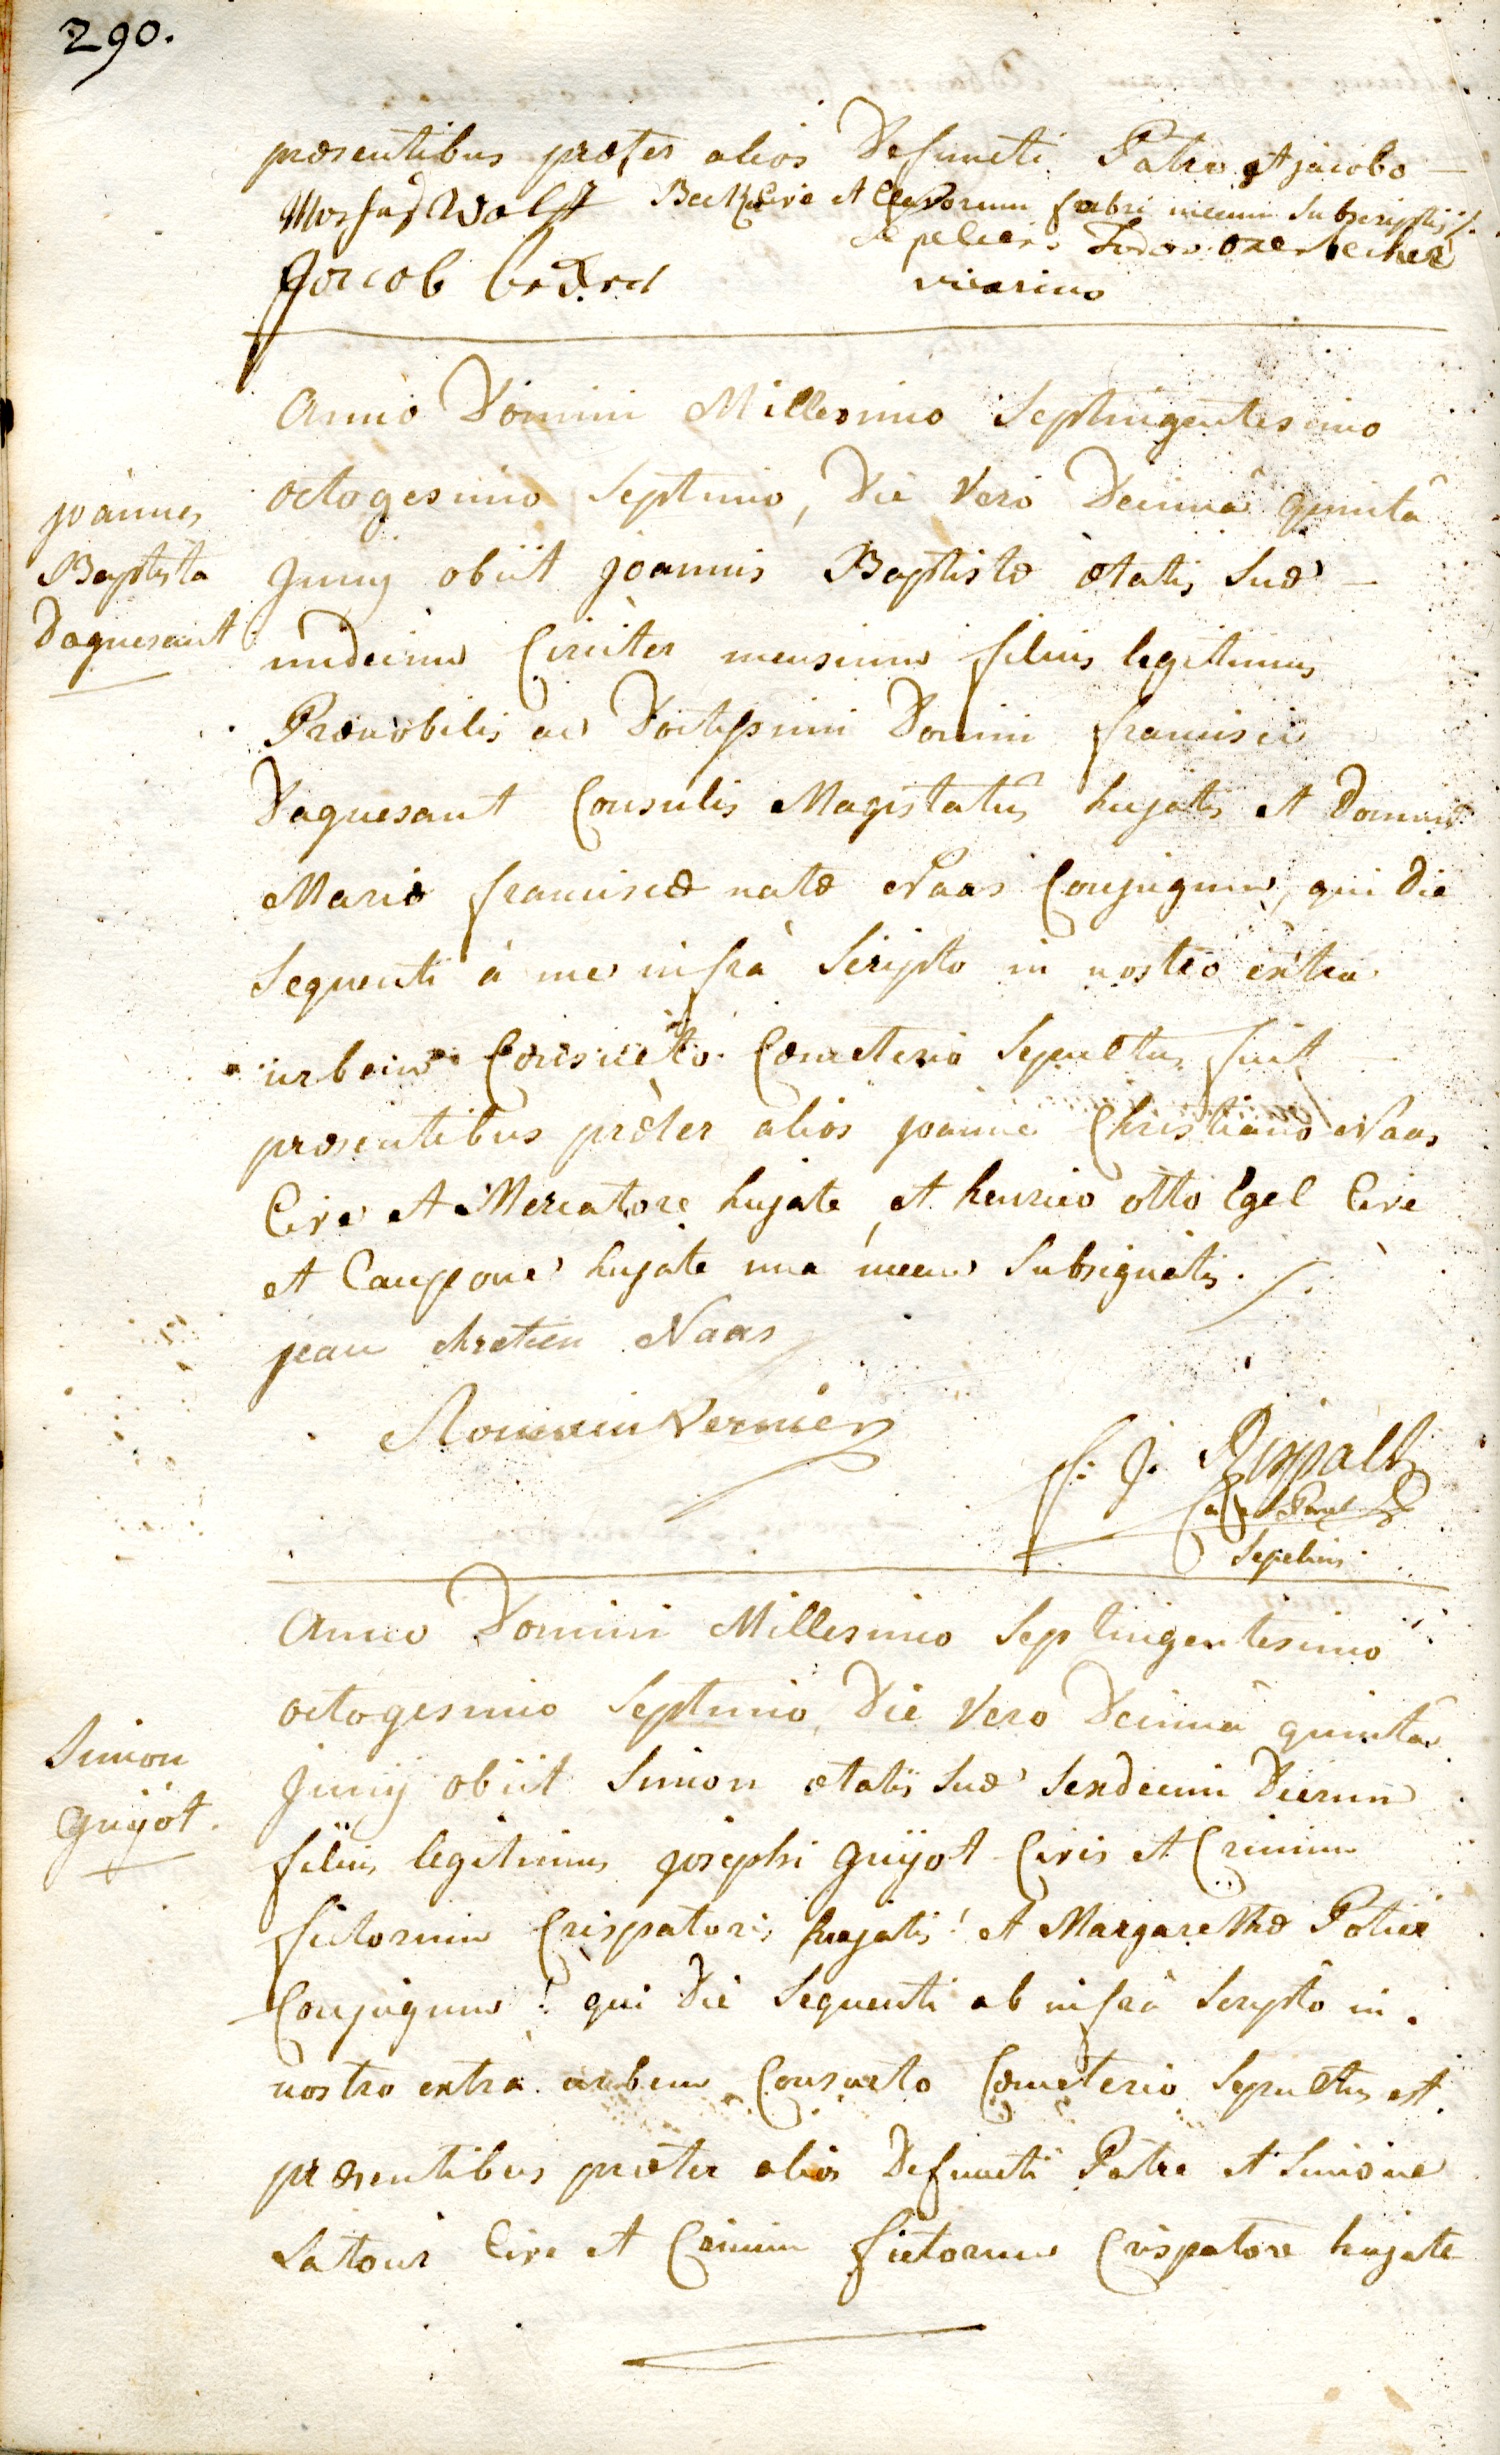 290.
præsentibus præter alios Defuncti Patre et jacobo
Wolff Beck Cive et Clavorum fabri mecum subscriptis
Sepeliens
Jacob vicarius
Anno Domini Millesimo Septingentesimo
octogesimo Septimo, Die Vero Decimâ quintâ
joannes
Baptista
Daguesaut
Junij obiit joannis Baptistæ ætatis Suæ
undecim Circiter mensium filius legitimus
Prænobilis ac Doctissimi Domini francisci
Daguesaut Consulis Magistatûs hujatis et Dominæ
Mariæ franciscæ natæ Naas Conjugum, qui Die
Sequenti à me infrà Scripto in nostro extra
urbem Consueto Cœmeterio Sepultus fuit
præsentibus præter alios joanne Christiano Naas
Cive et Mercatore hujate, et henrico otto Egel Cive
et Caupone hujate unà mecum Subsignatis.
jean chretien Naas
Romain Vernier
f: J. Rispalt
Sepeliens
Anno Domini Millesimo Septingentesimo
octogesimo Septimo, Die Vero Decimâ quintâ
Simon
Guijot.
Junij obiit Simon ætatis Suæ Sexdecim Dierum
filius legitimus josephi Guijot Civis et Crinium
fictorum Crispatoris hujatis et Margarethæ Potier
Conjugum: qui Die Sequenti ab infrà Scripto in
nostro extrà urbem Consueto Cœmeterio Sepultus est
præsentibus præter alios Defuncti Patre et Simone
Latour Cive et Crinium fictorum Crispatore hujate